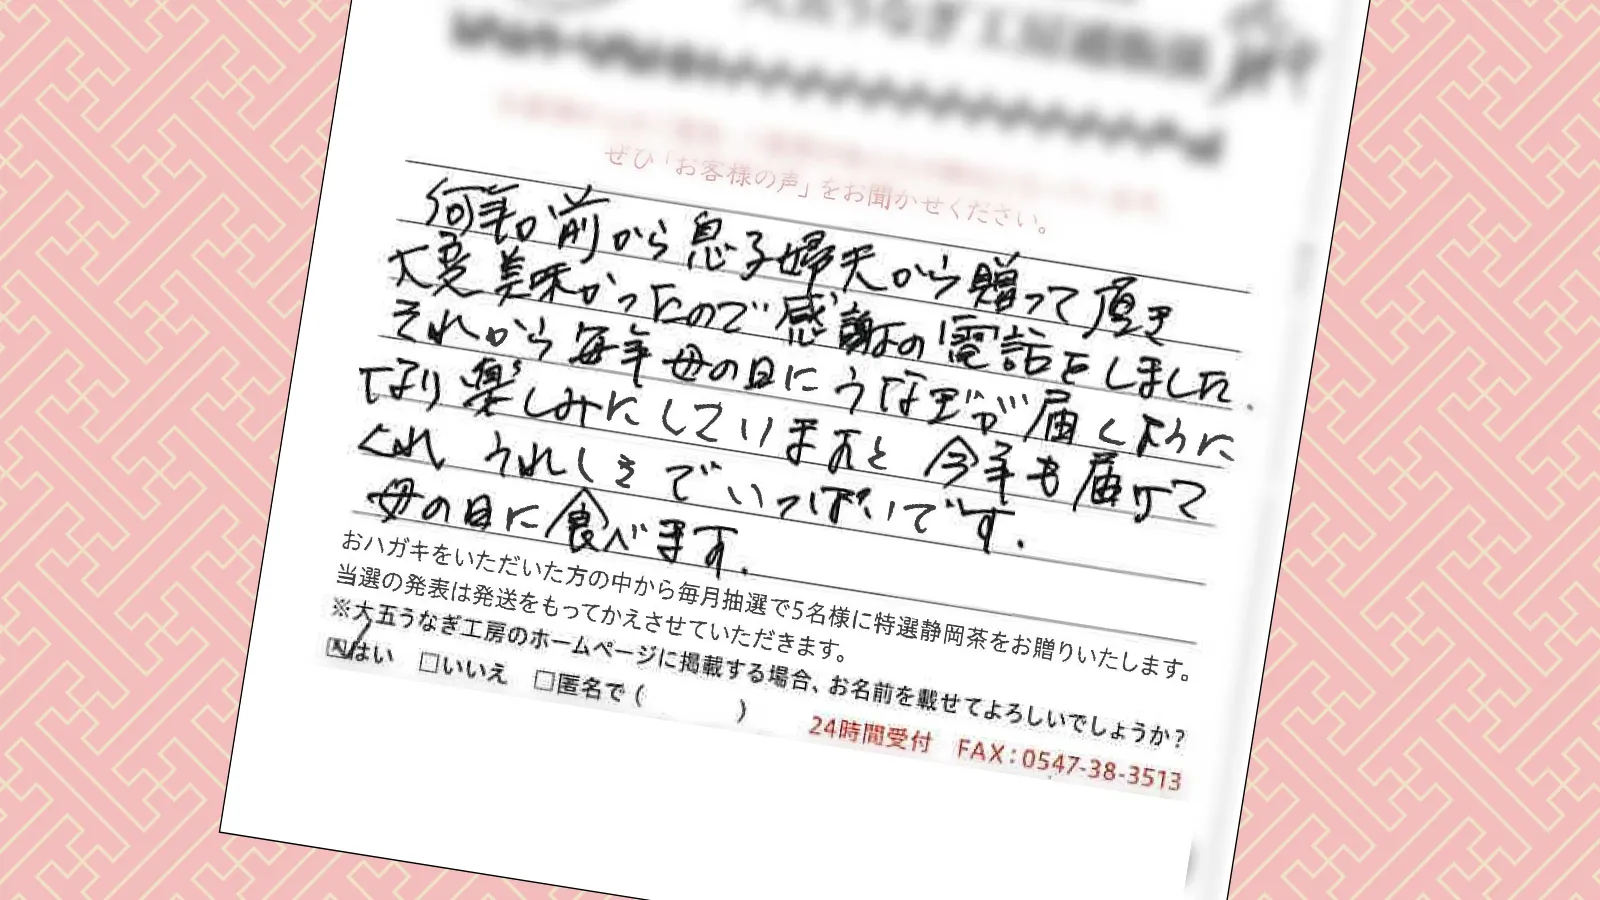 大五うなぎ工房通販部
ぜひ「お客様の声」をお聞かせください。
何年か前から息子婦夫から贈って頂き
大変美味かったので感謝の電話をしました.
それから毎年母の日にうなぎが届くように
なり楽しみにしていますと今年も届けて
くれうれしさでいっぱいです.
母の日に食べます.
おハガキをいただいた方の中から毎月抽選で5名様に特選静岡茶をお贈りいたします。
当選の発表は発送をもってかえさせていただきます。
※大五うなぎ工房のホームページに掲載する場合、お名前を載せてよろしいでしょうか?
☑はい □いいえ □匿名で( )
24時間受付 FAX:0547-38-3513